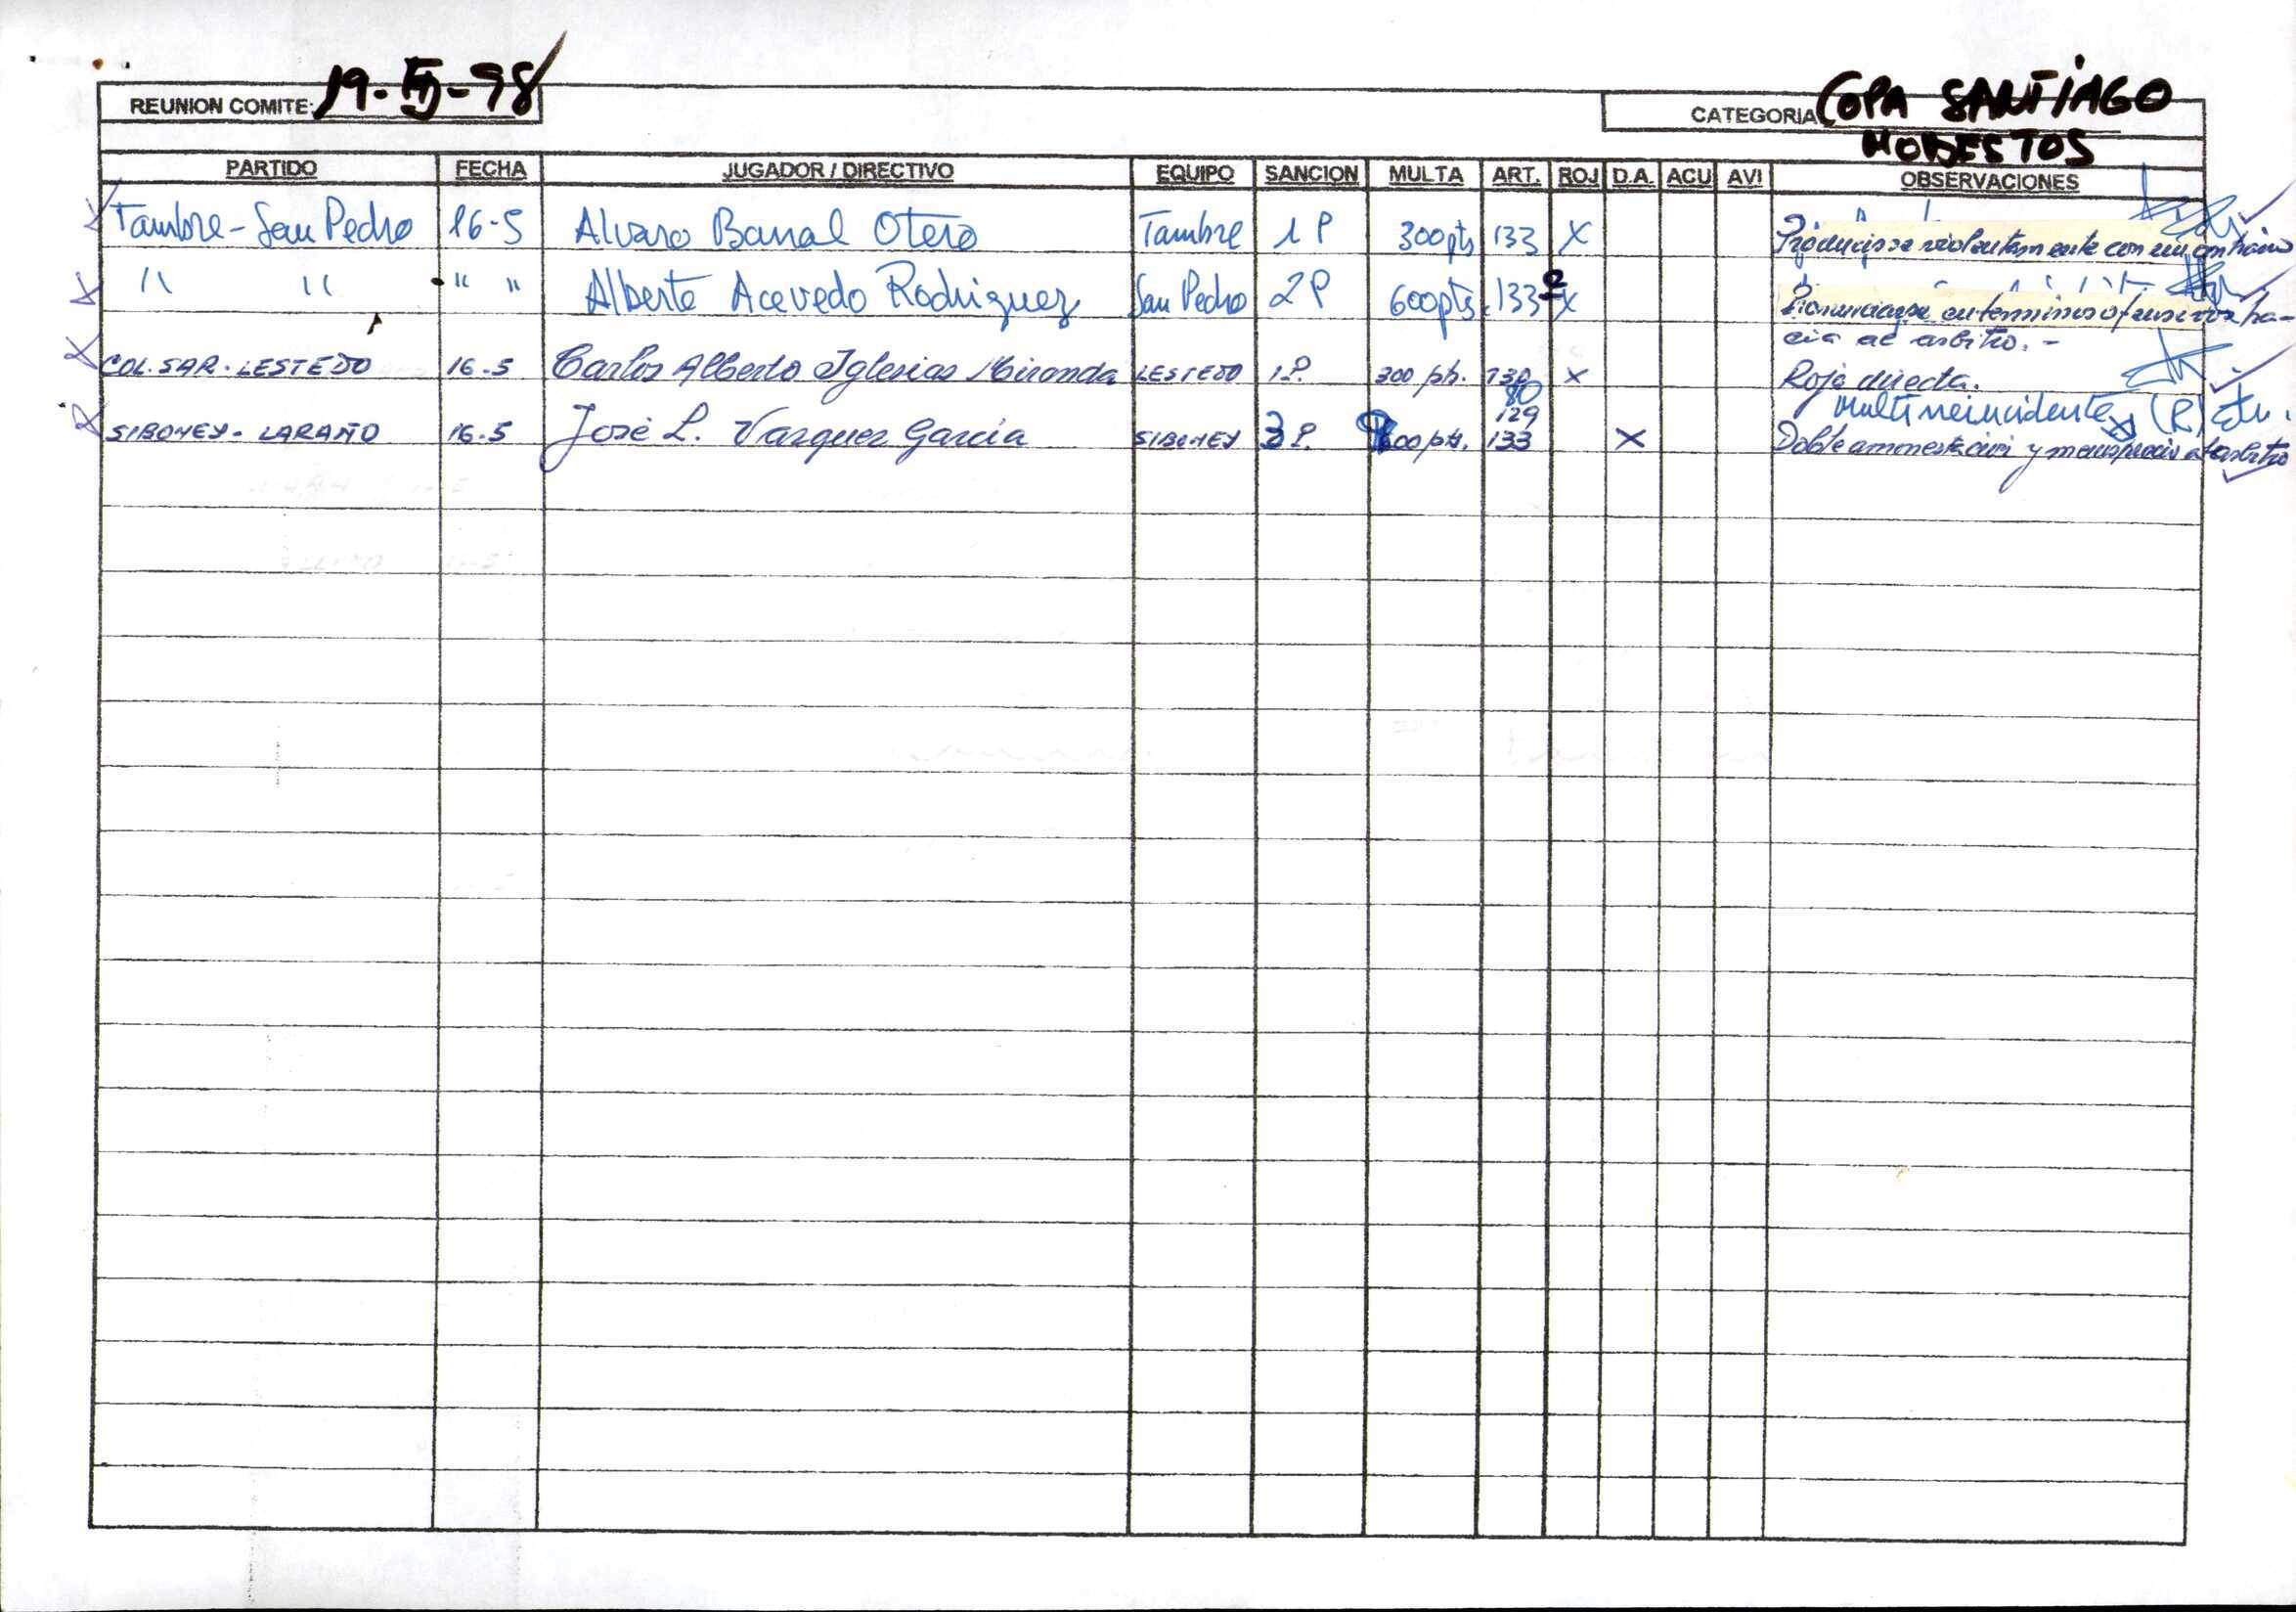 REUNION COMITE: 19-V-98
CATEGORIA COPA SANTIAGO
MODESTOS
PARTIDO FECHA JUGADOR / DIRECTIVO EQUIPO SANCION MULTA ART. ROJ D.A. ACU AVI OBSERVACIONES
Tambre - San Pedro 16-5 Alvaro Banal Otero Tambre 1 P 300pts 133 X Producirse violentamente con un contrario
" " " " Alberto Acevedo Rodriguez San Pedro 2 P 600pts. 133 X Pronunciarse en terminos ofensivos ha-
cia al arbitro. -
COL. SAR - LESTEDO 16-5 Carlos Alberto Iglesias Miranda LESTEDO 1 P. 300 pts. 130 X Roja directa.
80 Multirreincidente (R)
129
SIBONEY - LARAÑO 16-5 José L. Vazquez Garcia SIBONEY 3 P. 133 X Doble amonestacion y menosprecio al arbitro